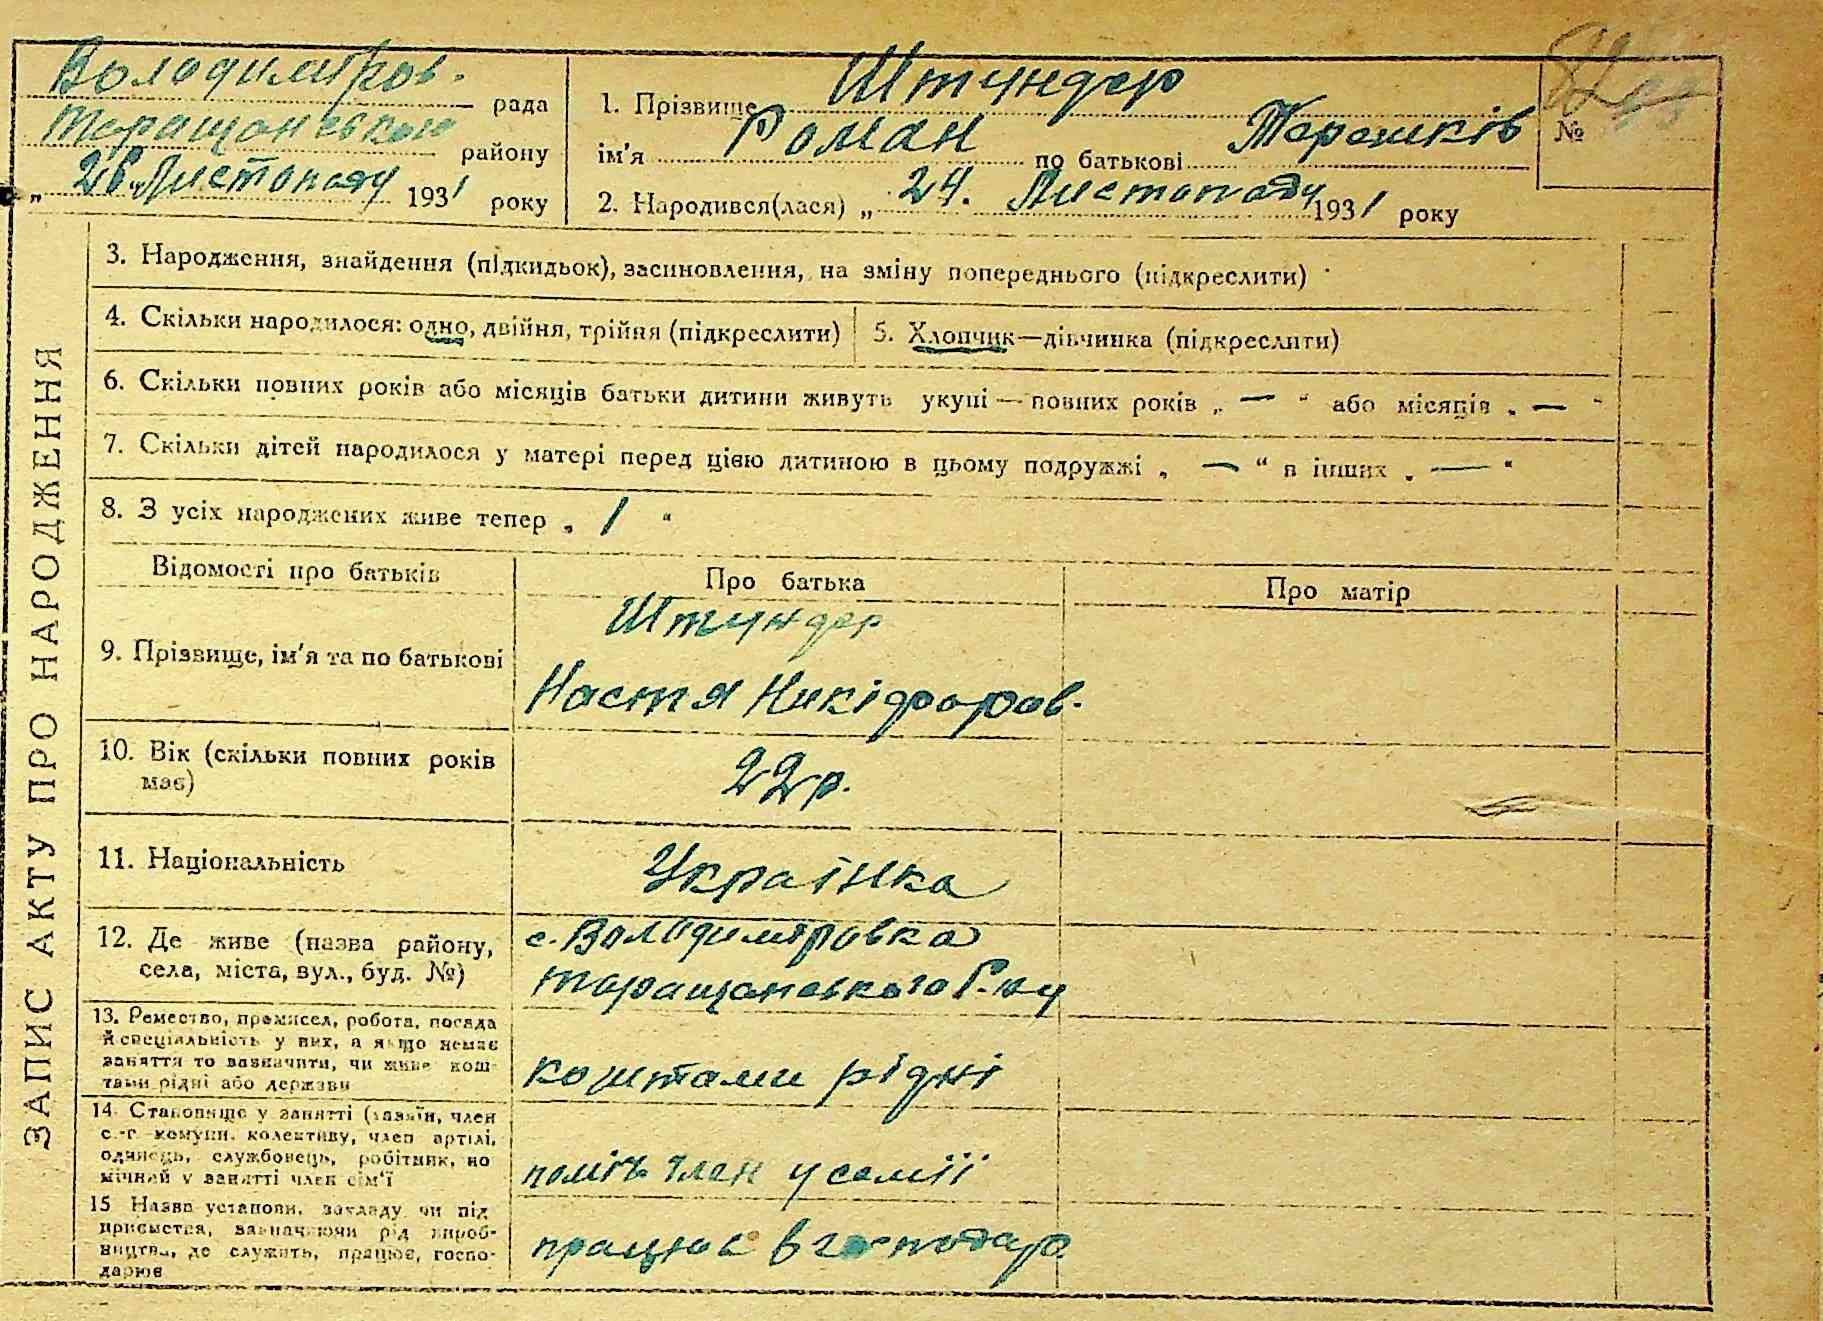 Володимиров.
рада
Таращанського
району
„ 26 " Листопаду 1931 року
1. Прізвище Штундер
ім'я Роман по батькові Терешків
№
2. Народився(лася) „ 24. Листопаду 1931 року
ЗАПИС АКТУ ПРО НАРОДЖЕННЯ
3. Народження, знайдення (підкидьок), засиновлення, на зміну попереднього (підкреслити)
4. Скільки народилося: одно, двійня, трійня (підкреслити)
5. Хлопчик—дівчинка (підкреслити)
6. Скільки повних років або місяців батьки дитини живуть укупі — повних років „ — “ або місяців „ — “
7. Скільки дітей народилося у матері перед цією дитиною в цьому подружжі „ — “ в інших „ — “
8. З усіх народжених живе тепер „ 1 “
Відомості про батьків
Про батька
Про матір
9. Прізвище, ім'я та по батькові
Штундер
Настя Никіфоров.
10. Вік (скільки повних років
має)
22р.
11. Національність
Українка
12. Де живе (назва району,
села, міста, вул., буд. №)
с. Володимировка
Таращанського Р-ну
13. Ремество, промисел, робота, посада
й спеціяльність у них, а якщо немає
заняття то зазначити, чи живе кош-
тами рідні або держави
коштами рідні
14. Становище у занятті (хазяїн, член
с.-г комуни, колективу, член артілі,
одинець, службовець, робітник, по
мічний у занятті член сім'ї
поміч член у семії
15 Назва установи, закладу чи під
приємства, зазначаючи рід вироб-
ництва, де служить, працює, госпо-
дарює
працює в господар.